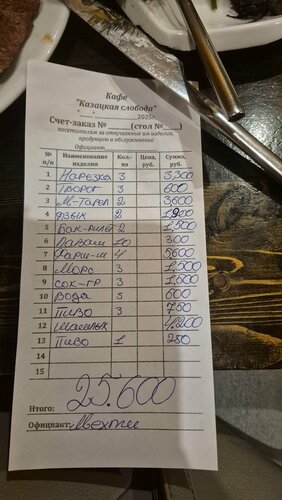 Кафе
"Казацкая слобода"
"___"__________2025г.
Счет-заказ №______(стол №____)
посетителям за отпущенные им изделия,
продукцию и обслуживание
Официант
№ п/п Наименование изделия Кол-во Цена, руб. Сумма, руб.
1 Нарезка 3 3,300
2 Творог 3 600
3 М-Тарел 2 3,600
4 Язык 2
5 2 1,500
6 Лаваш 10 300
7 4 5,600
8 Морс 3 1,500
9 сок-гр 3
10 Вода 5 600
11 Пиво 3 750
12 Шашлык 4,200
13 Пиво 1 250
14
15
Итого: 25.600
Официант: